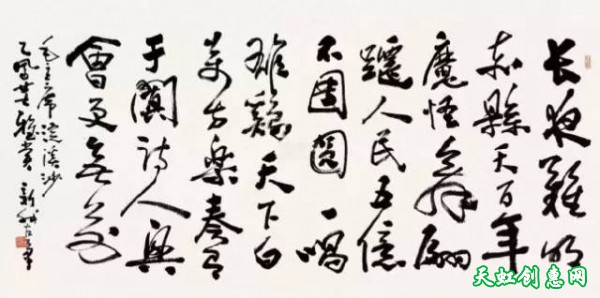 长夜難明
赤縣天百年
魔怪舞翩
躚人民五億
不團圓一唱
雄鷄天下白
萬方樂奏有
于闐詩人興
會更無前
毛主席浣溪沙
天虹创惠网